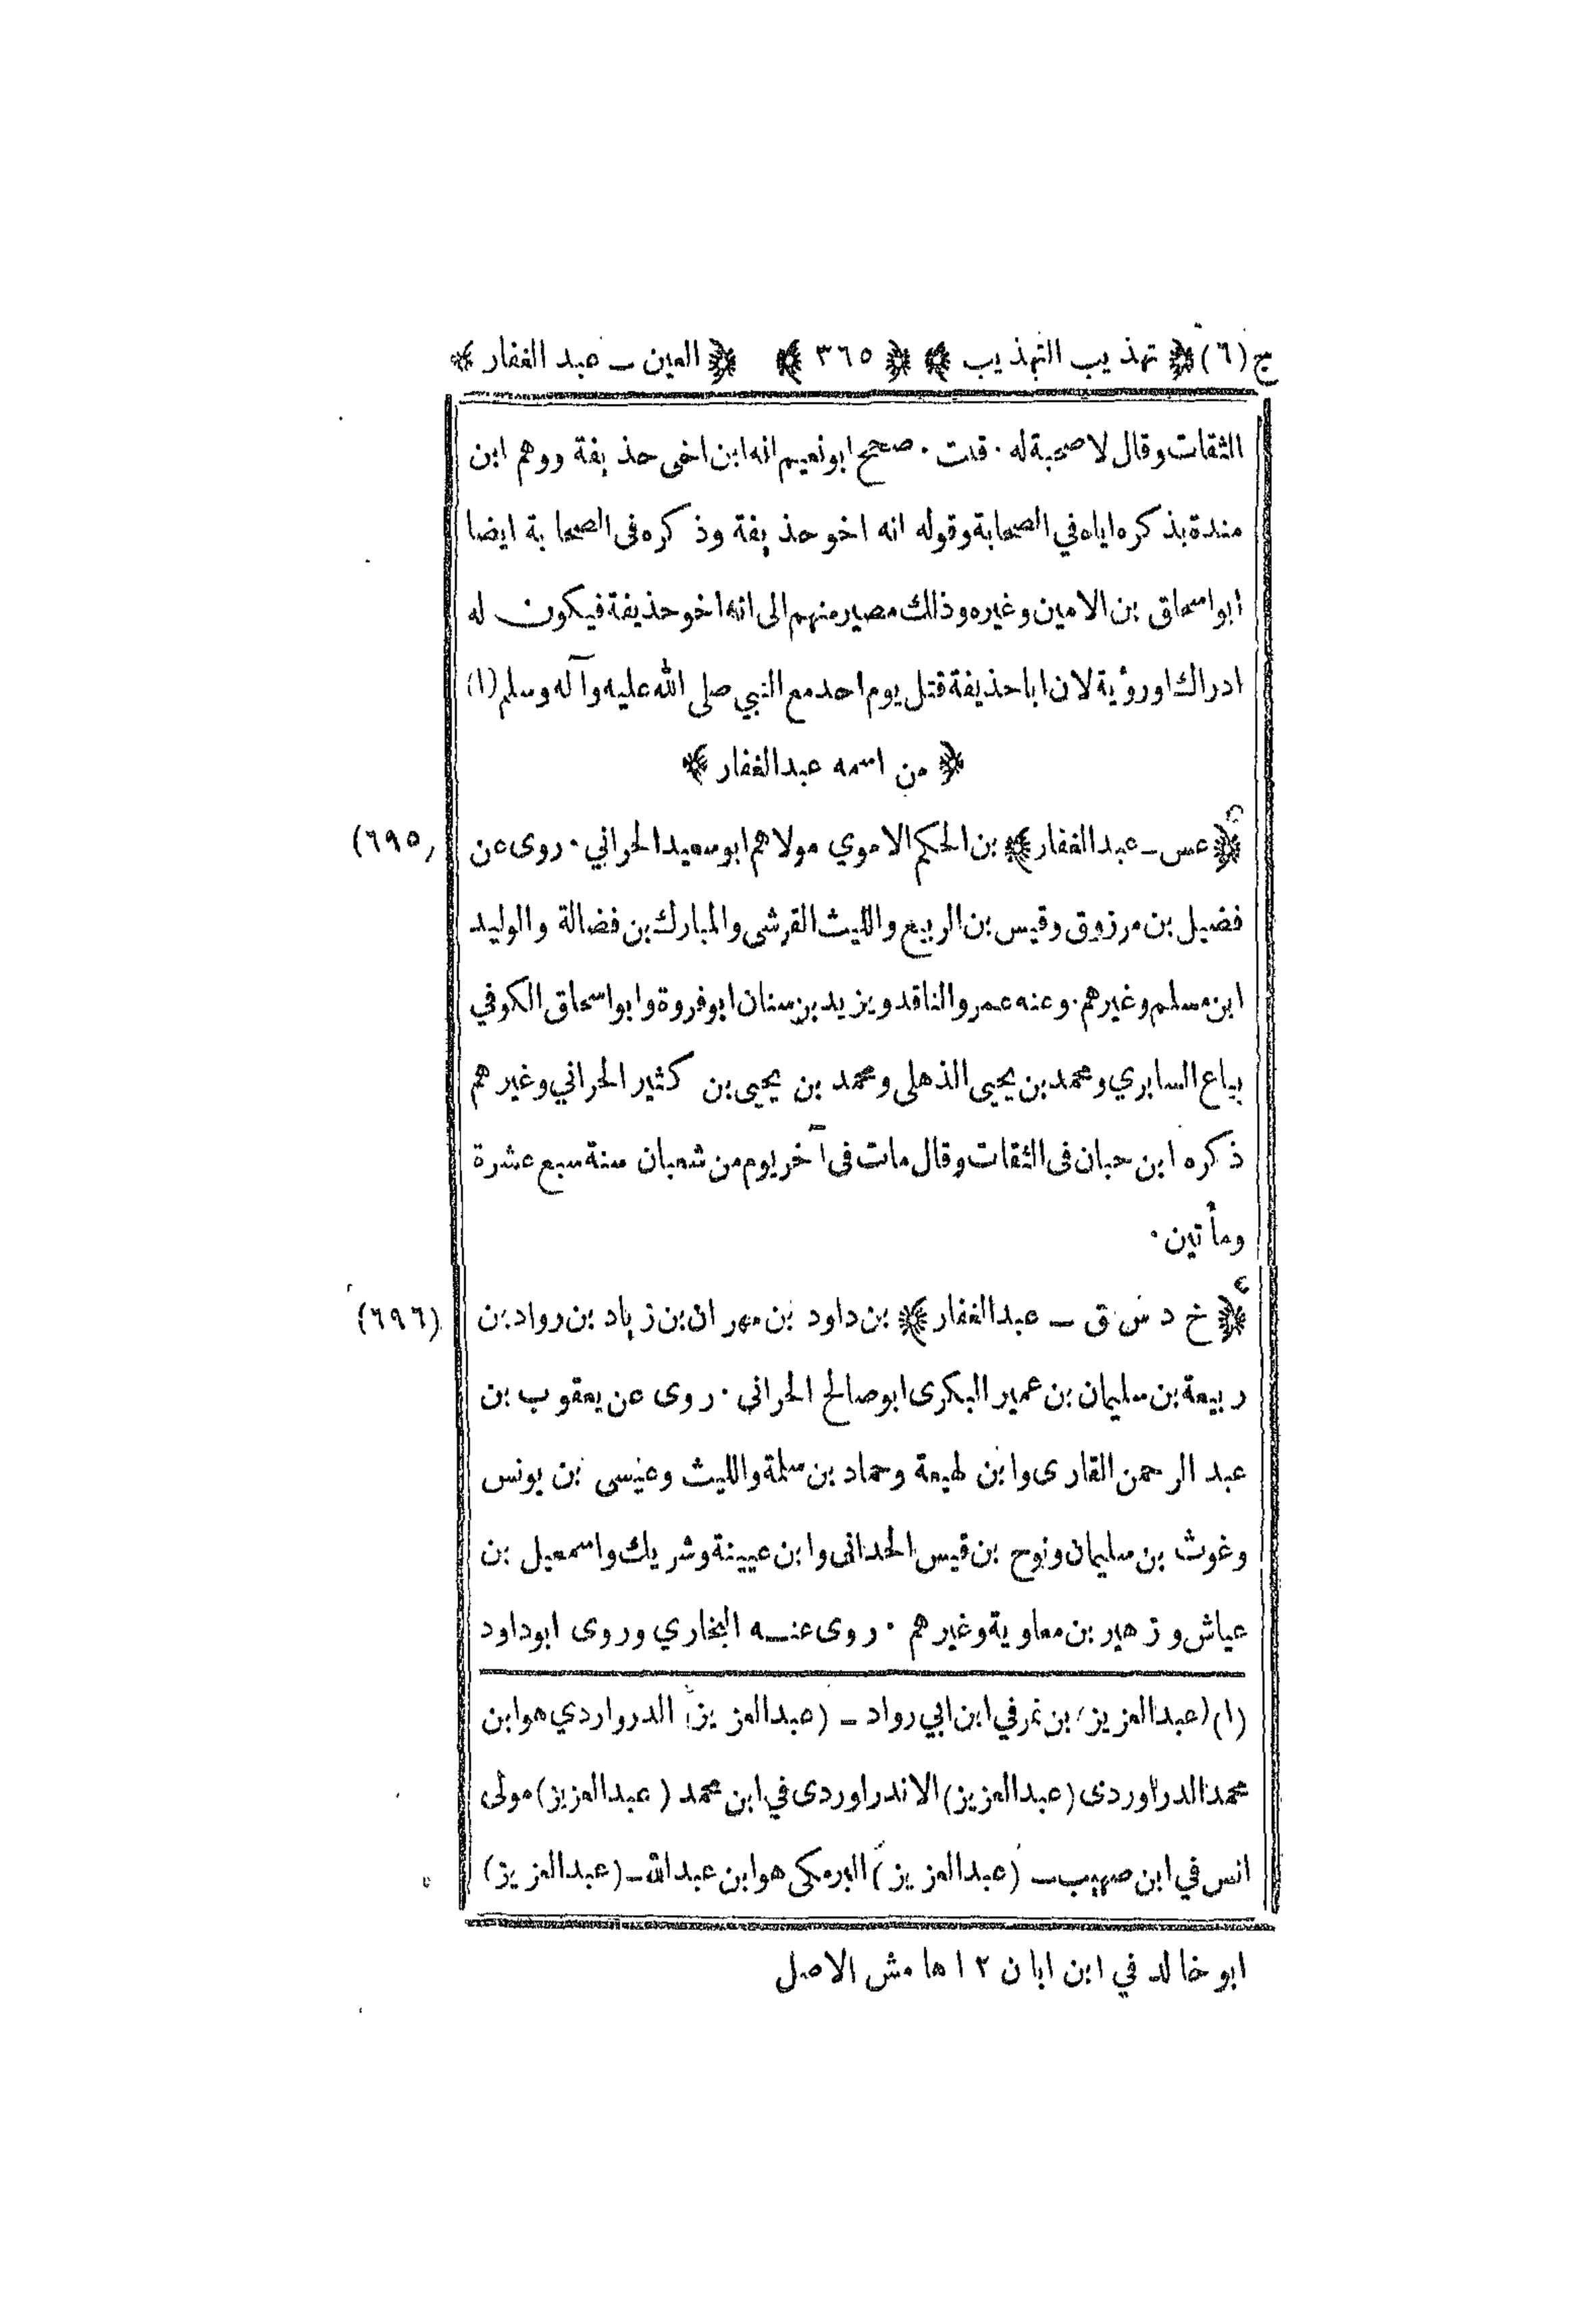 ج (٦) ﴿ تهذيب التهذيب ﴾ ﴿ ٣٦٥ ﴾ ﴿ العين ــ عبد الغفار ﴾
الثقات وقال لا صحبة له . قلت . صحح ابو نعيم انه ابن اخى حذيفة ووهم ابن
مندة بذكره اياه في الصحابة وقوله انه اخو حذيفة وذكره فى الصحابة ايضا
ابو اسحاق بن الامين وغيره وذلك مصير منهم الى انه اخو حذيفة فيكون له
ادراك اورؤية لان اباحذيفة قتل يوم احد مع النبي صلى الله عليه وآله وسلم (١)
﴿ من اسمه عبدالغفار ﴾
﴿ عس ــ عبدالغفار ﴾ بن الحكم الاموي مولاهم ابو سعيد الحراني . روى عن (٦٩٥)
فضيل بن مرزوق وقيس بن الربيع والليث القرشى والمبارك بن فضالة والوليد
ابن مسلم وغيرهم . وعنه عمرو الناقد ويزيد بن سنان ابو فروة وابو اسحاق الكوفي
بياع السابري ومحمد بن يحيى الذهلى ومحمد بن يحيى بن كثير الحراني وغيرهم
ذكره ابن حبان فى الثقات وقال مات فى آخر يوم من شعبان سنة سبع عشرة
ومأتين .
﴿ خ د س ق ــ عبدالغفار ﴾ بن داود بن مهران بن زياد بن رواد بن (٦٩٦)
ربيعة بن سليمان بن عمير البكرى ابو صالح الحرانى . روى عن يعقوب بن
عبد الرحمن القارى وابن لهيعة وحماد بن سلمة والليث وعيسى بن يونس
وغوث بن سليمان ونوح بن قيس الحدانى وابن عيينة وشريك واسمعيل بن
عياش و زهير بن معاوية وغيرهم . روى عنــه البخاري وروى ابوداود
(١) (عبدالعزيز) بن نمر في ابن ابي رواد ــ (عبدالعزيز) الدرواردي هو ابن
محمد الدراوردى (عبدالعزيز) الاندراوردى في ابن محمد (عبدالعزيز) مولى
انس في ابن صهيب ــ (عبدالعزيز) البرمكى هو ابن عبدالله ــ (عبدالعزيز)
ابو خالد في ابن ابان ١٢ هامش الاصل